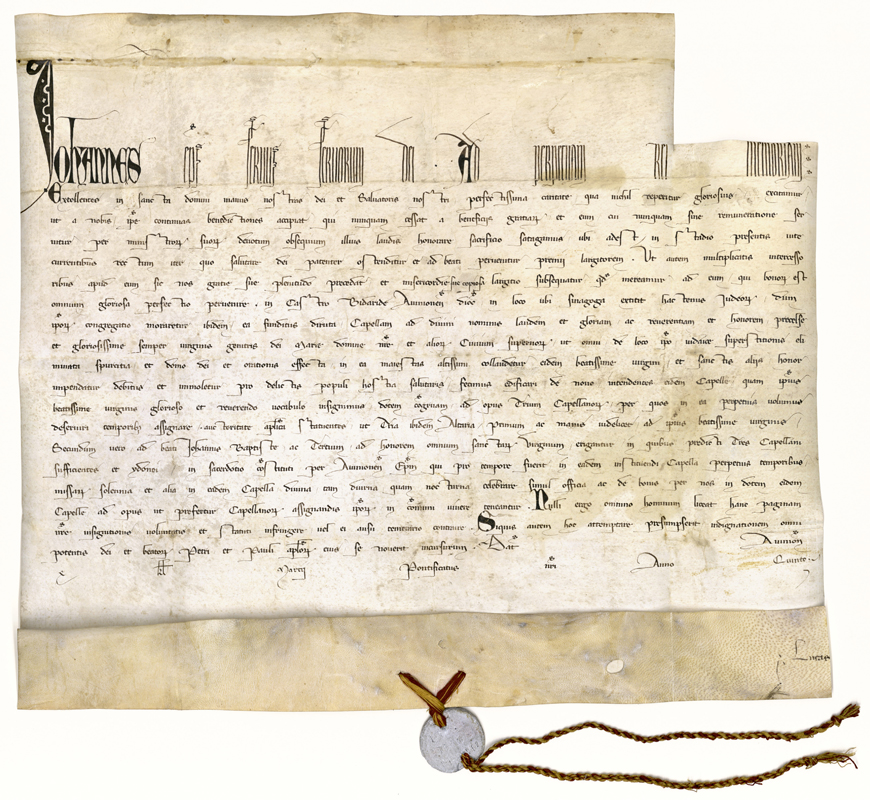 Johannes eps servus servorum dei Ad perpetuam rei memoriam
Excellentes in sancta domini manus nostras dei et Salvatoris nostri perfectissima caritate qua nichil reperitur gloriosius excitamur
ut a nobis ipse continuas benedictiones accipiat qui nunquam cessat a beneficiis gratiarum et eum cui nunquam sine remuneratione ser
vitur per ministrorum suorum devotum obsequium illius laudis honorare sacrificio satagimus ubi adest in stadio presentis vite
currentibus rectum iter quo salutare dei patenter ostenditur et ad beati pervenitur premii largitorem Ut autem multiplicatis intercesso
ribus apud eum sic nos gratie sue plenitudo precedat et misericordie sue copiosa largitio subsequatur quod mereamur ad eum qui honor est
omnium gloriosa perfectio pervenire in Castro Bidaride Avinionen dioc in loco ubi sinagoga extitit hactenus Judeor dum
ipor congregatio moraretur ibidem ea funditus diruta Capellam ad divini nominis laudem et gloriam ac reverentiam et honorem precelse
et gloriosissime semper virginis genitricis dei Marie domine nre et alior Civium supernor ut omni de loco ipo iudaice superstitionis eli
minata spurcitia et domo dei et orationis effecta in ea maiestas altissimi collaudetur eidem beatissime virgini et sanctis aliis honor
impendatur debitus et immoletur pro delictis populi hostia salutaris fecimus edificari de novo intendentes eidem Capelle quam ipius
beatissime virginis glorioso et reverendo vocabulo insignimus dotem cogruam ad opus Trium Capellanor per quos in ea perpetuis volumus
deserviri temporib assignare auctoritate aplica statuentes ut Tria ibidem Altaria Primum ac maius videlicet ad ipius beatissime virginis
Secundum vero ad beati Johannis Baptiste ac Tertium ad honorem omnium sanctar Virginum erigantur in quibus predicti Tres Capellani
sufficientes et ydonei in sacerdotio costituti per Avinionen Epm qui pro tempore fuerit in eadem instituendi Capella perpetuis temporibus
missar solennia et alia in eadem Capella divina tam diurna quam nocturna celebrare simul officia ac de bonis per nos in dotem eidem
Capelle ad opus ut prefertur Capellanor assignandis ipor in comuni vivere teneantur Nulli ergo omnino hominum liceat hanc paginam
nre insignitionis voluntatis et statuti infringere vel ei ausu temerario contraire Siquis autem hoc attemptare presumpserit indignationem omni
potentis dei et beator Petri et Pauli aplor eius se noverit incursurum Dat Avinion
Marcii Pontificatus nri Anno Quinto
Lucas